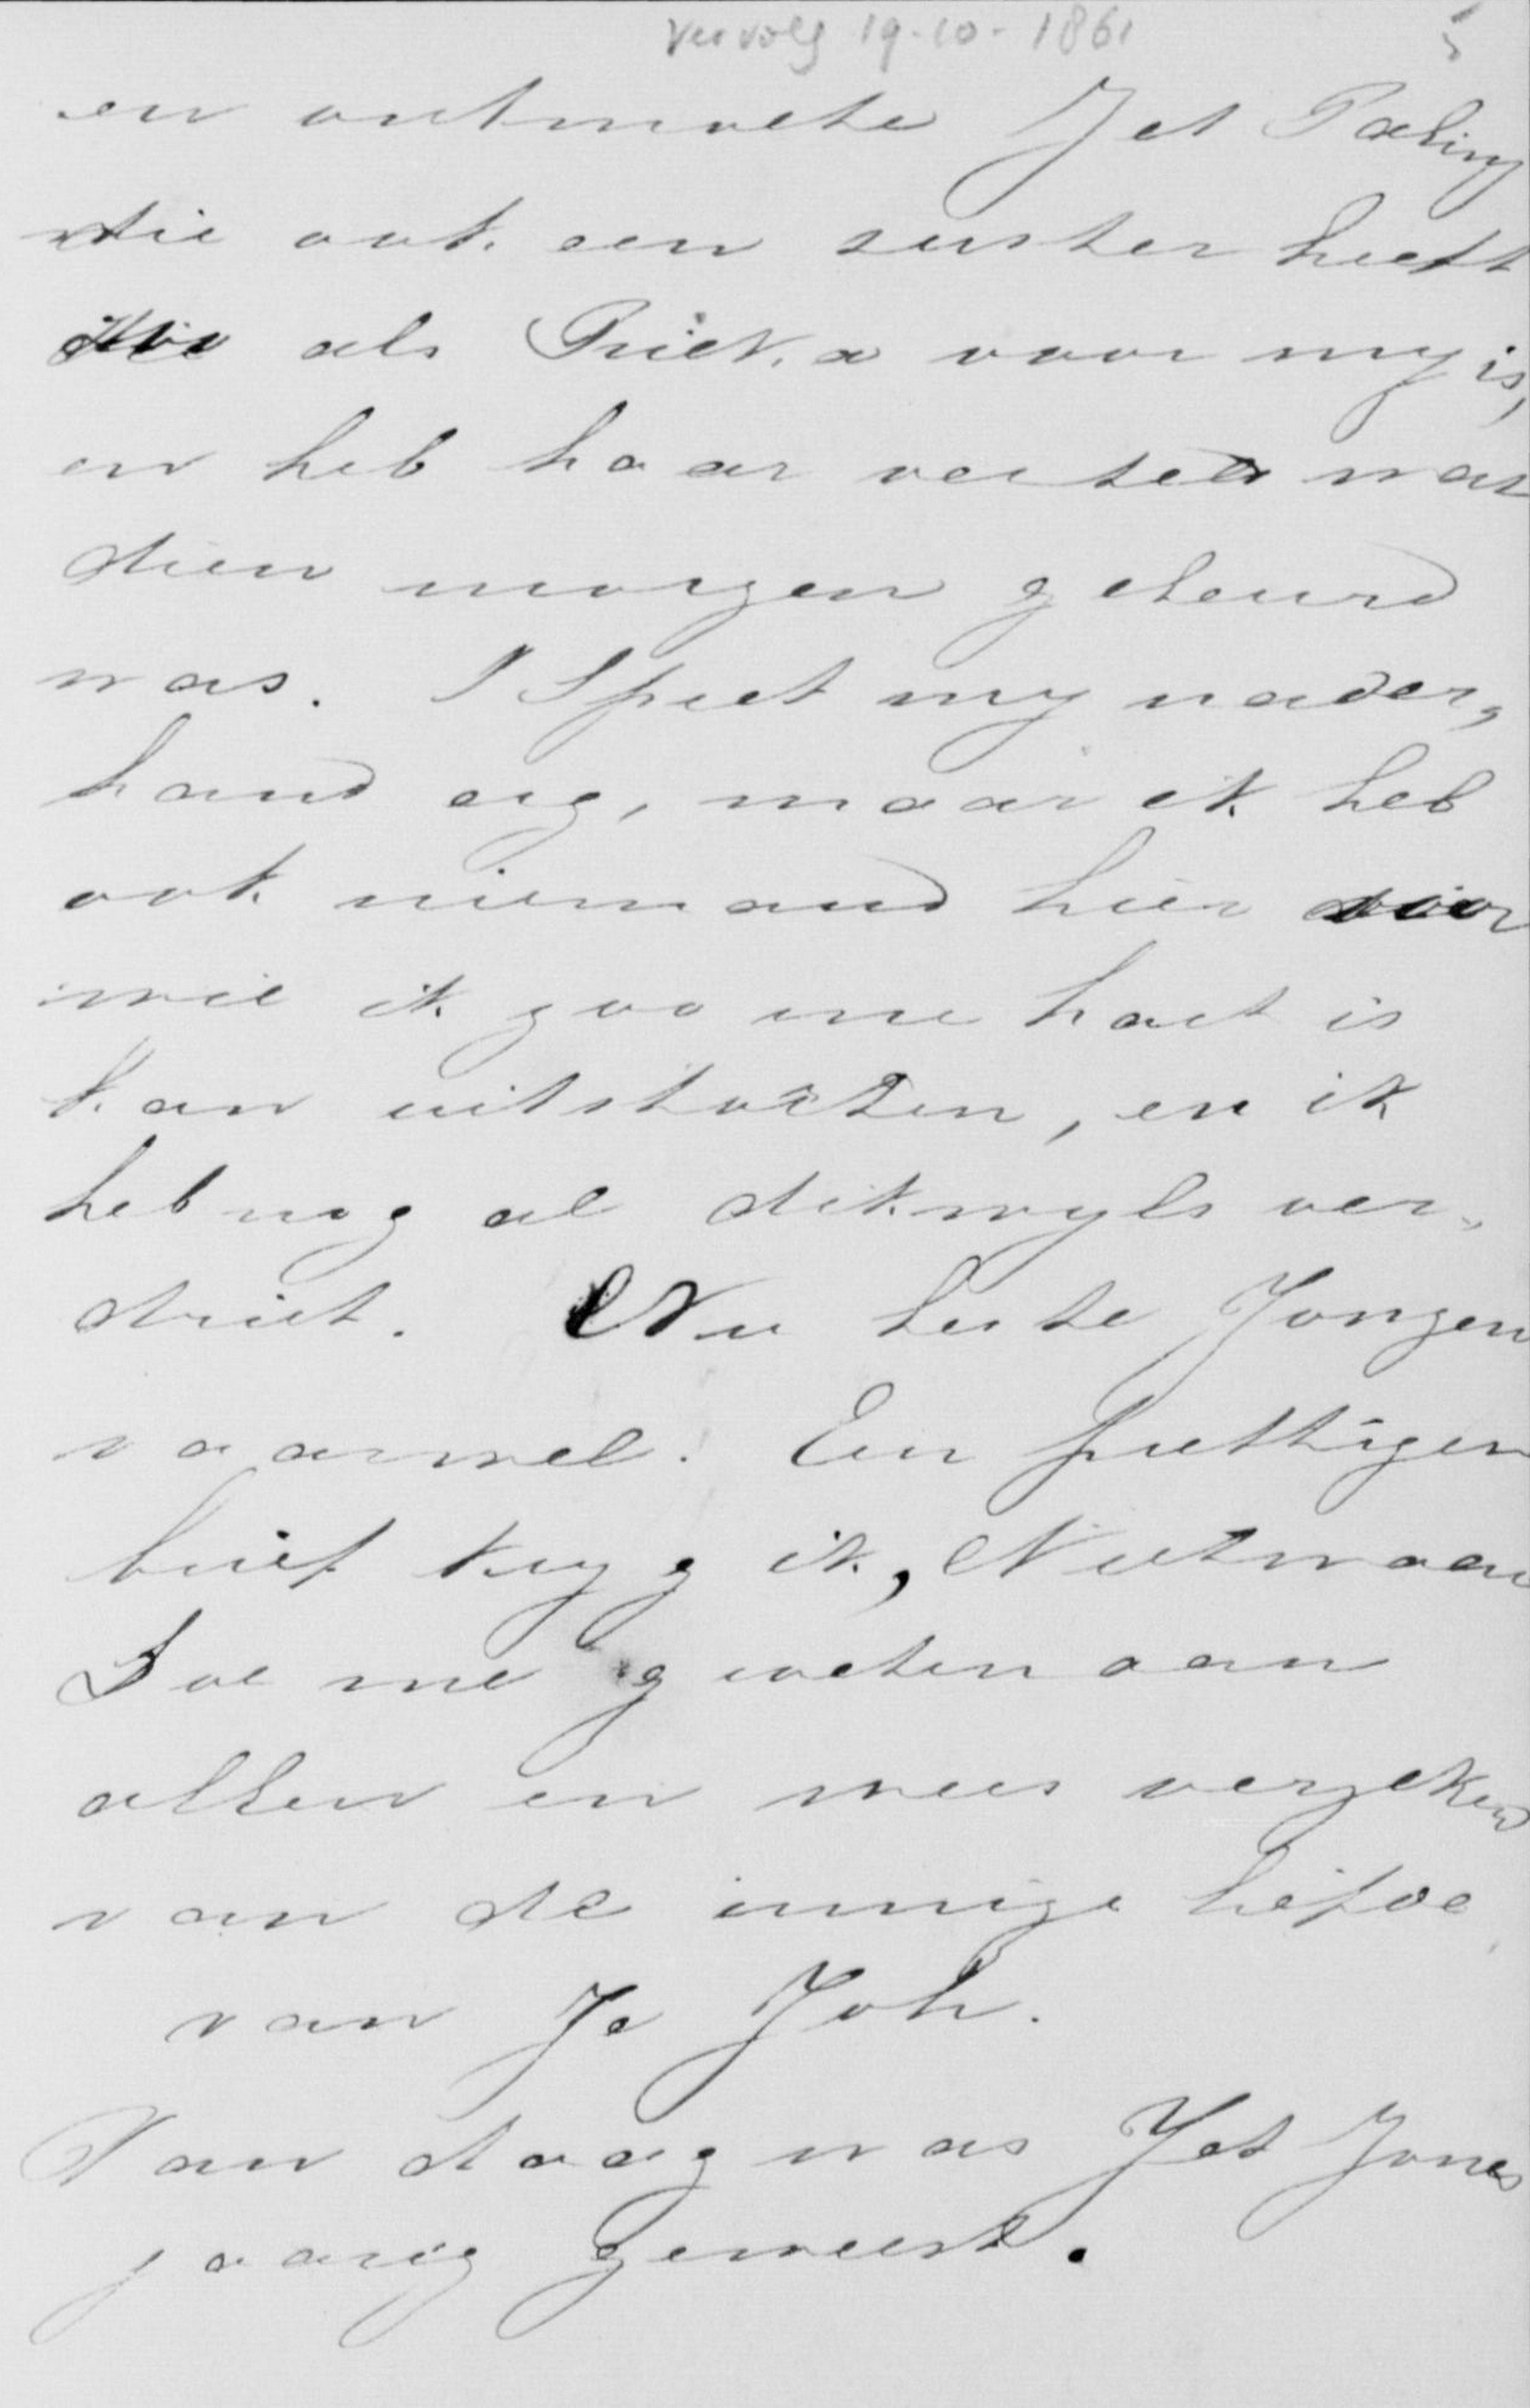 Vervolg 19-10-1861 5
en ontmoette Jet Paling
die ook een zuster heeft
als Priek.a voor my is,
en heb haar verteld wat
dien morgen gebeurd
was. 'T Speet my nader,
hand erg, maar ik heb
ook niemand hier voor
wie ik zoo me hart is
kan uitstorten, en ik
heb nog al dikwyls ver,
driet. Nu beste Jongen
vaarwel! Een prettigen
brief kryg ik, Niet waar
Doe me groeten aan
allen en wees verzekerd
van de innige liefde
van Je Joh.
Van daag was Jet Jones
jaarig geweest.